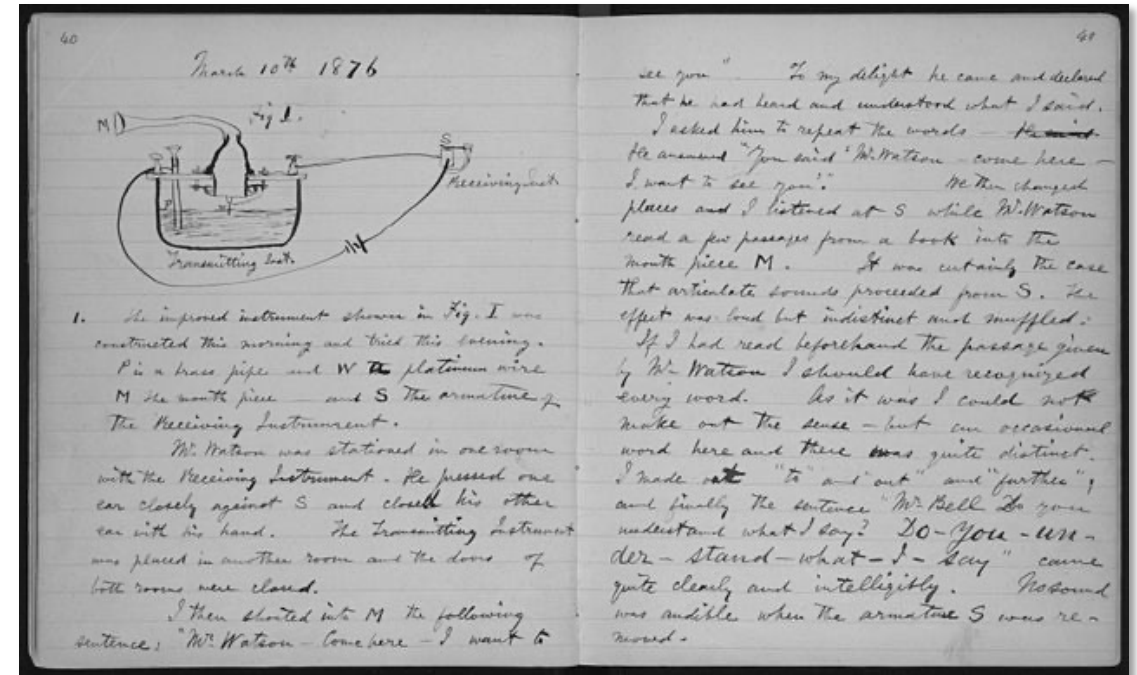 40
March 10th 1876
Fig 1.
M
S
Receiving Inst.
P
W
Transmitting Inst.
1. The improved instrument shown in Fig. I was
constructed this morning and tried this evening.
P is a brass pipe and W the platinum wire
M the mouth piece — and S the armature of
the Receiving Instrument.
Mr. Watson was stationed in one room
with the Receiving Instrument. He pressed one
ear closely against S and closed his other
ear with his hand. The Transmitting Instrument
was placed in another room and the doors of
both rooms were closed.
I then shouted into M the following
sentence: "Mr. Watson — Come here — I want to
41
see you". To my delight he came and declared
that he had heard and understood what I said.
I asked him to repeat the words —
He answered "You said "Mr. Watson — come here —
I want to see you"." We then changed
places and I listened at S while Mr. Watson
read a few passages from a book into the
mouth piece M. It was certainly the case
that articulate sounds proceeded from S. The
effect was loud but indistinct and muffled.
If I had read beforehand the passage given
by Mr. Watson I should have recognized
every word. As it was I could not
make out the sense — but an occasional
word here and there was quite distinct.
I made out "to" and "out" and "further";
and finally the sentence "Mr. Bell Do you
understand what I say? Do-You-un-
der-stand-what-I-say" came
quite clearly and intelligibly. No sound
was audible when the armature S was re-
moved.